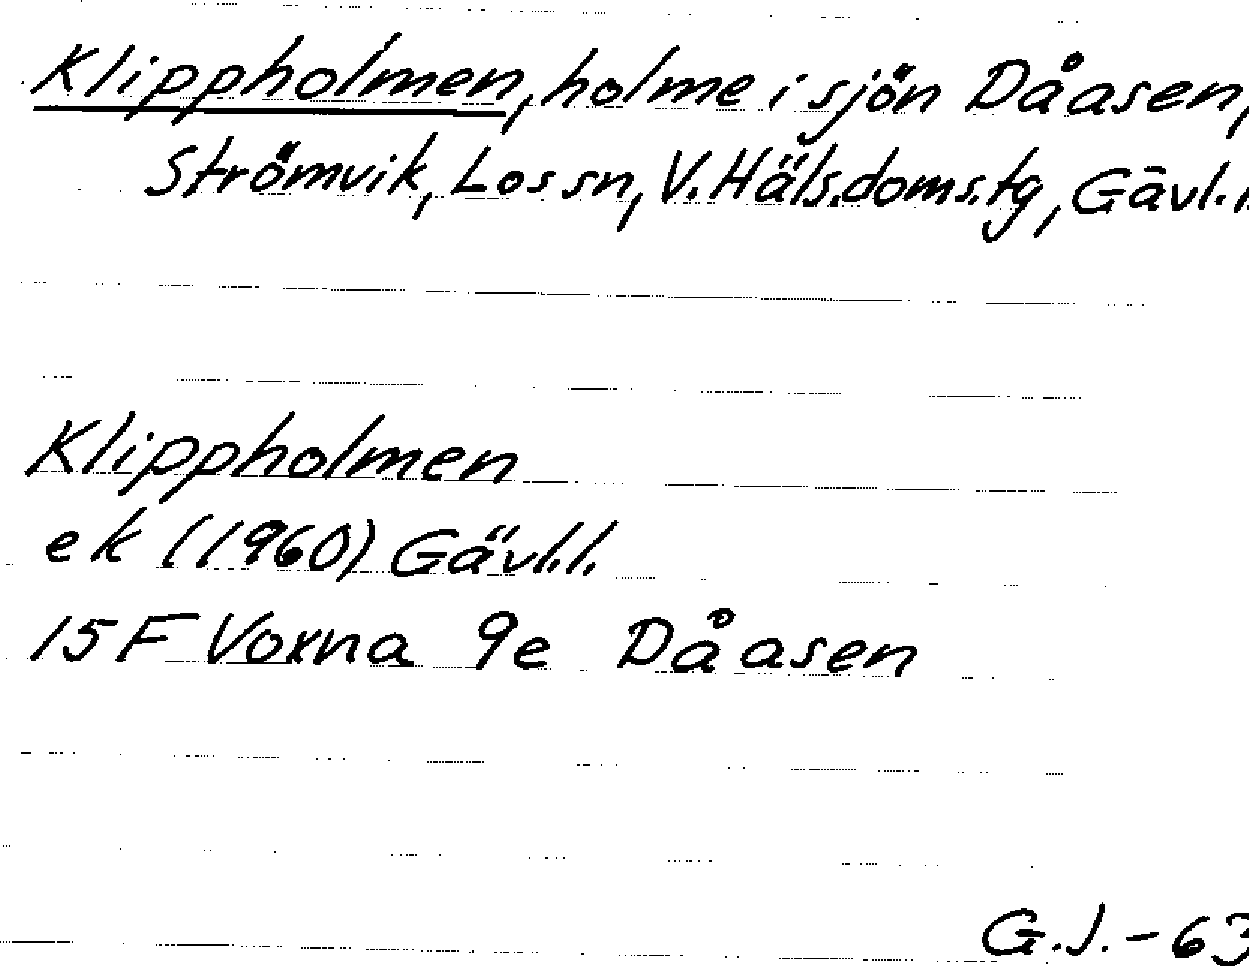 Klippholmen, holme i sjön Dåasen,
Strömvik, Los sn, V. Häls. doms. tg, Gävl. l.
Klippholmen
ek (1960) Gävl.l.
15F Voxna 9e Dåasen
G.J. - 63